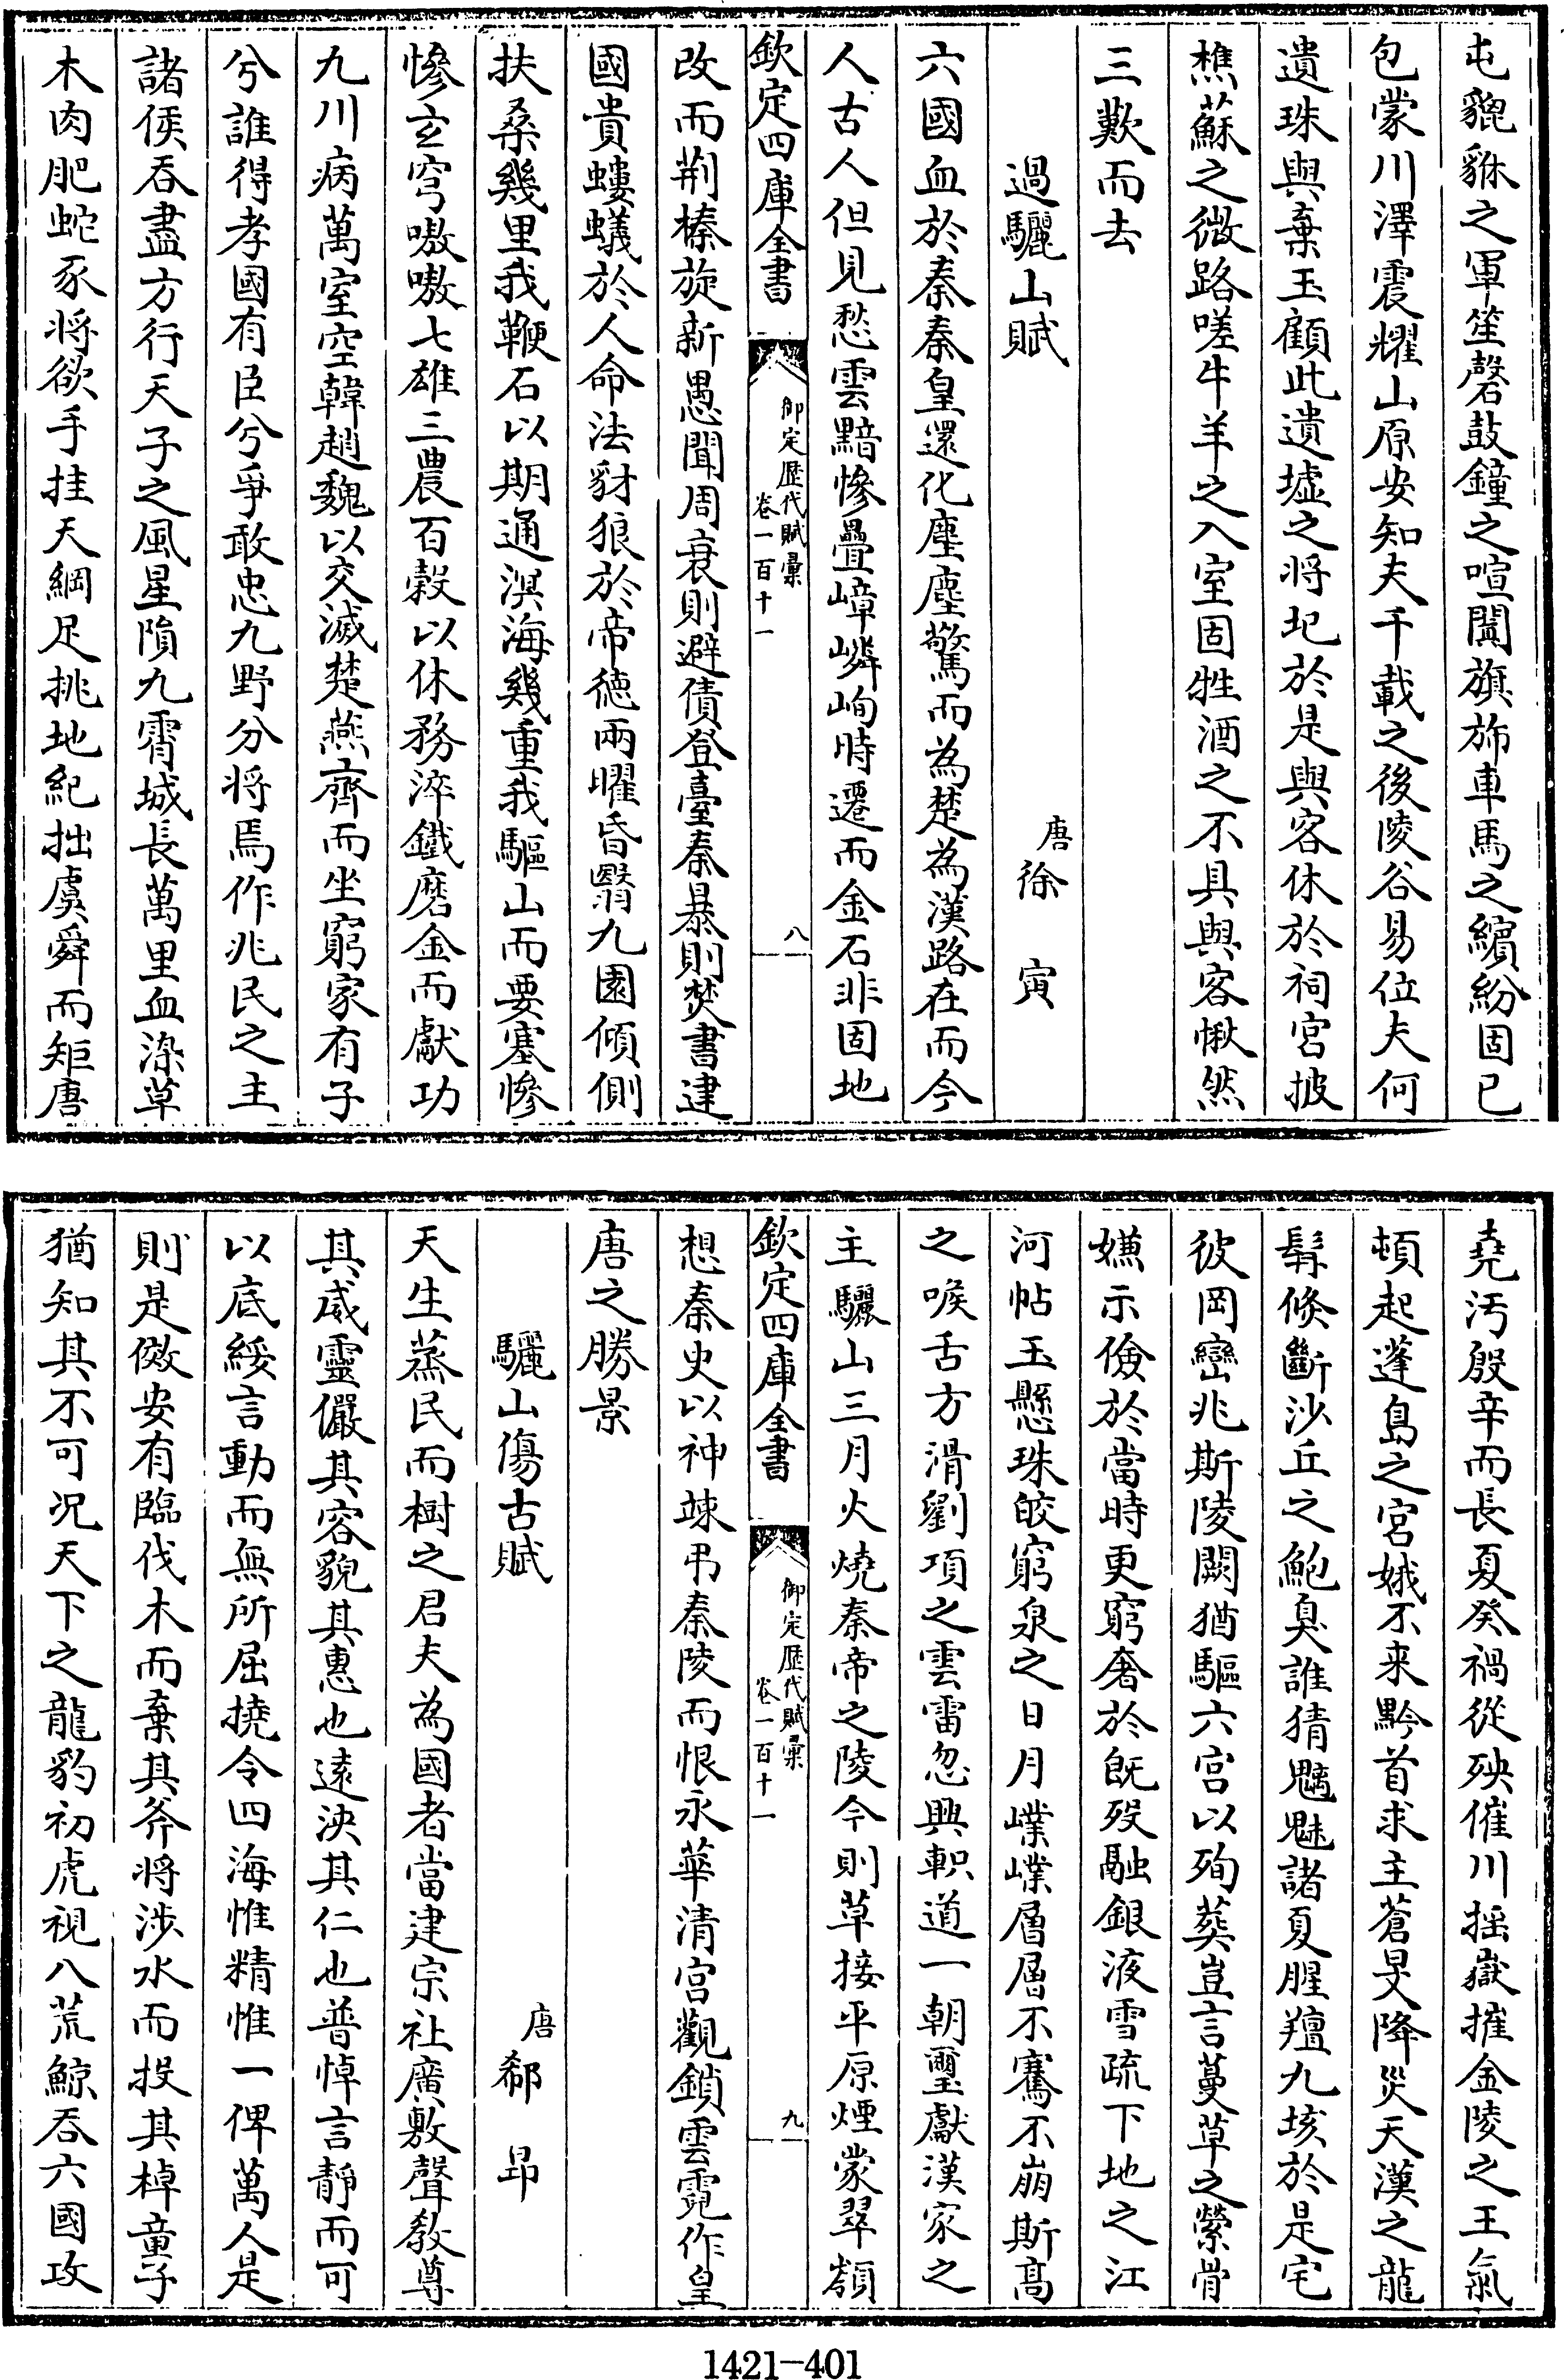 屯貔貅之軍笙磬鼓鐘之喧闐旗斾車馬之繽紛固已
包蒙川澤震耀山原安知夫千載之後陵谷易位夫何
遺珠與棄玉顧此遺墟之将圮於是與客休於祠宫披
樵蘇之微路嗟牛羊之入室固牲酒之不具與客愀然
三歎而去
過驪山賦 唐徐寅
六國血於秦秦皇還化塵塵驚而為楚為漢路在而今
人古人但見愁雲黯慘疊嶂嶙峋時遷而金石非固地
欽定四庫全書 御定歴代賦彙 卷一百十一 八
改而荆榛旋新愚聞周衰則避債登臺秦暴則焚書建
國貴螻蟻於人命法豺狼於帝徳兩曜昏翳九圍傾側
扶桑幾里我鞭石以期通溟海幾重我驅山而要塞慘
慘玄穹嗷嗷七雄三農百榖以休務淬鐵磨金而獻功
九川病萬室空韓趙魏以交滅楚燕齊而坐窮家有子
兮誰得孝國有臣兮爭敢忠九野分将焉作兆民之主
諸侯吞盡方行天子之風星隕九霄城長萬里血染草
木肉肥蛇豕将欲手挂天綱足挑地紀拙虞舜而矩唐
堯汚殷辛而長夏癸禍從殃催川揺嶽摧金陵之王氣
頓起蓬島之宫娥不来黔首求主蒼旻降災天漢之龍
髯倏斷沙丘之鮑臭誰猜魑魅諸夏腥羶九垓於是宅
彼岡巒兆斯陵闕猶驅六宫以殉葬豈言蔓草之縈骨
嫌示儉於當時更窮奢於既歿融銀液雪疏下地之江
河帖玉懸珠皎窮泉之日月㠔㠔層層不騫不崩斯髙
之喉舌方滑劉項之雲雷忽興軹道一朝璽獻漢家之
主驪山三月火燒秦帝之陵今則草接平原煙蒙翠嶺
欽定四庫全書 御定歴代賦彙 卷一百十一 九
想秦史以神竦弔秦陵而恨永華清宫觀鎖雲霓作皇
唐之勝景
驪山傷古賦 唐郗昂
天生蒸民而樹之君夫為國者當建宗社廣敷聲教尊
其威靈儼其容貌其惠也逺浹其仁也普悼言靜而可
以底綏言動而無所屈撓令四海惟精惟一俾萬人是
則是傚安有臨伐木而棄其斧将涉水而投其棹童子
猶知其不可况天下之龍豹初虎視八荒鯨吞六國攻
1421-401